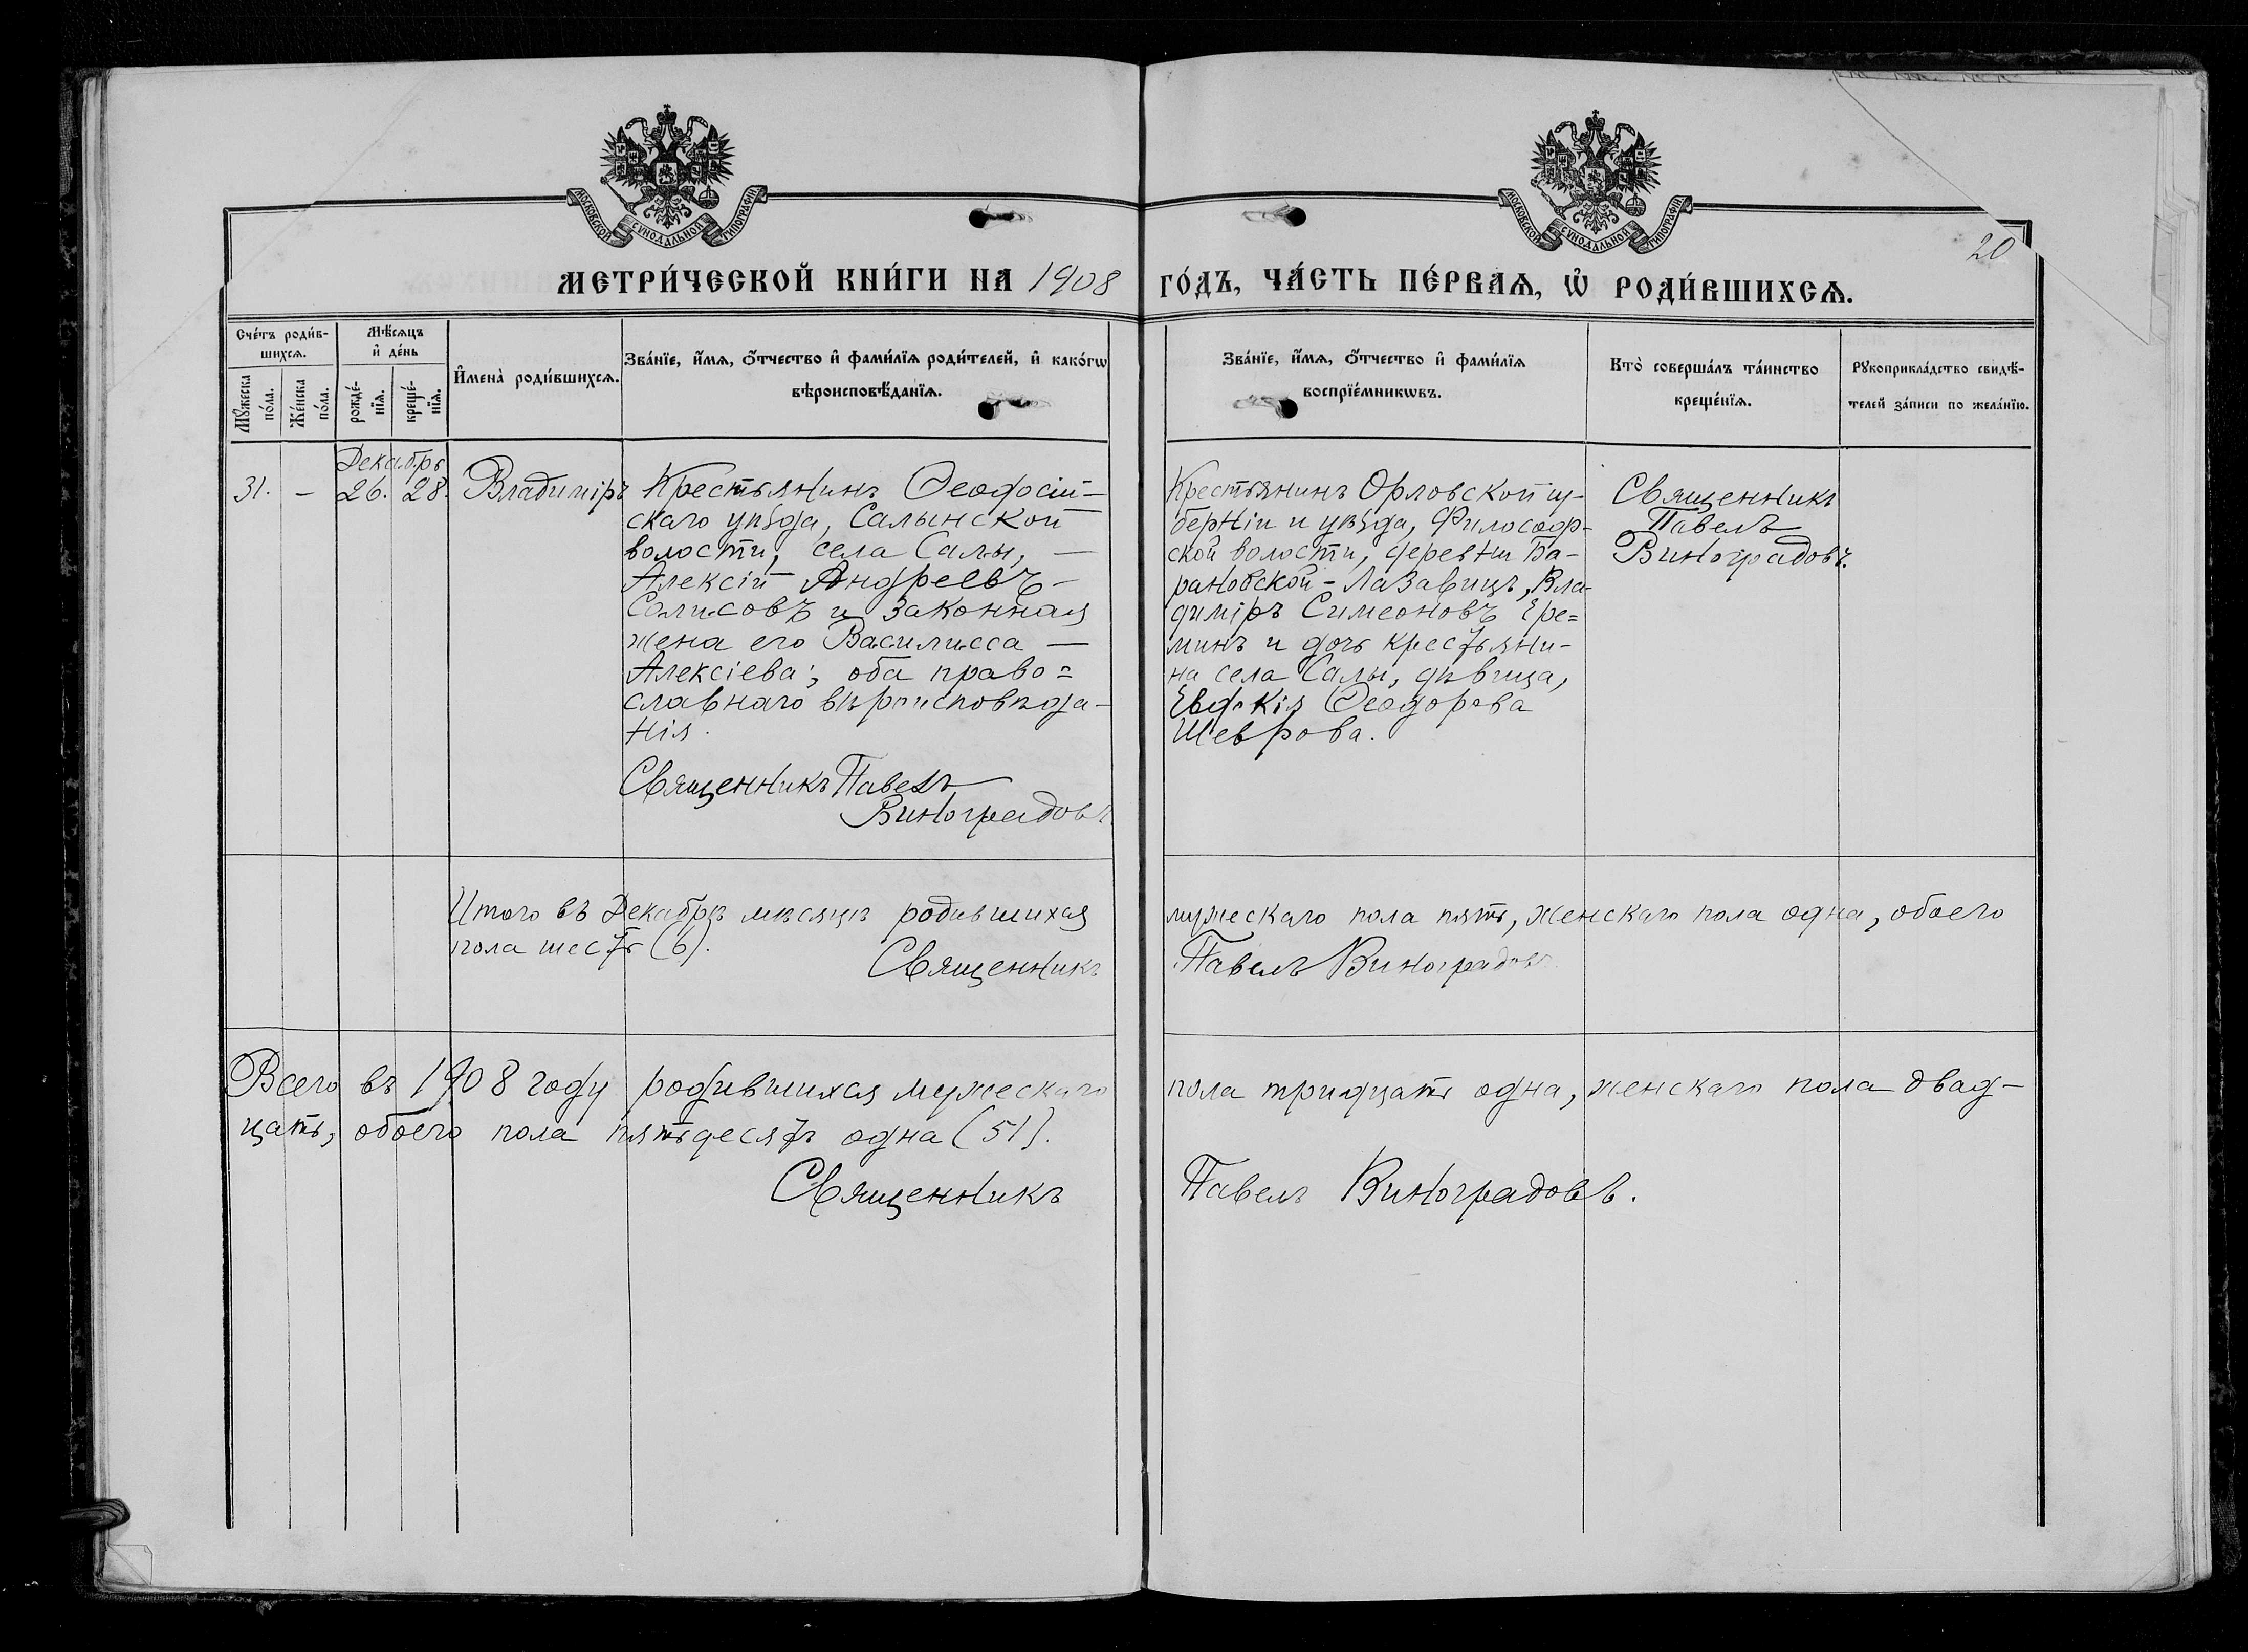 МОСКОВСКОЙ СУНОДАЛЬНОЙ ТИПОГРАФІИ
МОСКОВСКОЙ СУНОДАЛЬНОЙ ТИПОГРАФІИ
20
МЕТРИ́ЧЕСКОЙ КНИ́ГИ НА 1908 ГО́ДЪ, ЧА́СТЬ ПЕ́РВАѦ, Ѡ҆ РОДИ́ВШИХСѦ.
Сче́тъ роди́в-
шихсѧ.
Мꙋ́жеска
по́ла.
Же́нска
по́ла.
Мѣ́сѧцъ
и҆ де́нь
рожде́-
нїѧ.
креще́-
нїѧ.
И҆мена̀ роди́вшихсѧ.
Зва́нїе, и҆́мѧ, ѻ҆́тчество и҆ фами́лїѧ роди́телей, и҆ како́гѡ
вѣроисповѣ́данїѧ.
Зва́нїе, и҆́мѧ, ѻ҆́тчество и҆ фами́лїѧ
воспрїе́мникѡвъ.
Кто̀ соверша́лъ та́инство
креще́нїѧ.
Рꙋкоприкла́дство свидѣ́-
телей за́писи по жела́нїю.
Декабрь
31. – 26. 28. Владиміръ
Крестьянинъ Ѳеодосій-
скаго уѣзда, Салынской
волости, села Салы, —
Алексій Андреевъ —
Салисовъ и законная
жена его Василисса —
Алексіева; оба право=
славнаго вѣроисповѣда-
нія.
Священникъ Павелъ
Виноградовъ.
Крестьянинъ Орловской гу-
берніи и уѣзда, Философ-
ской волости, деревни Ба-
рановской - Лазавицъ, Вла-
диміръ Симеоновъ Ере=
минъ и дочь крестьяни-
на села Салы, дѣвица,
Евдокія Ѳеодорова
Шеврова.
Священникъ
Павелъ
Виноградовъ.
Итого въ Декабрѣ мѣсяцѣ родившихся мужескаго пола пять, женскаго пола одна, обоего
пола шесть (6).
Священникъ Павелъ Виноградовъ
Всего въ 1908 году родившихся мужескаго пола тридцать одна, женскаго пола двад-
цать, обоего пола пятьдесятъ одна (51).
Священникъ Павелъ Виноградовъ.